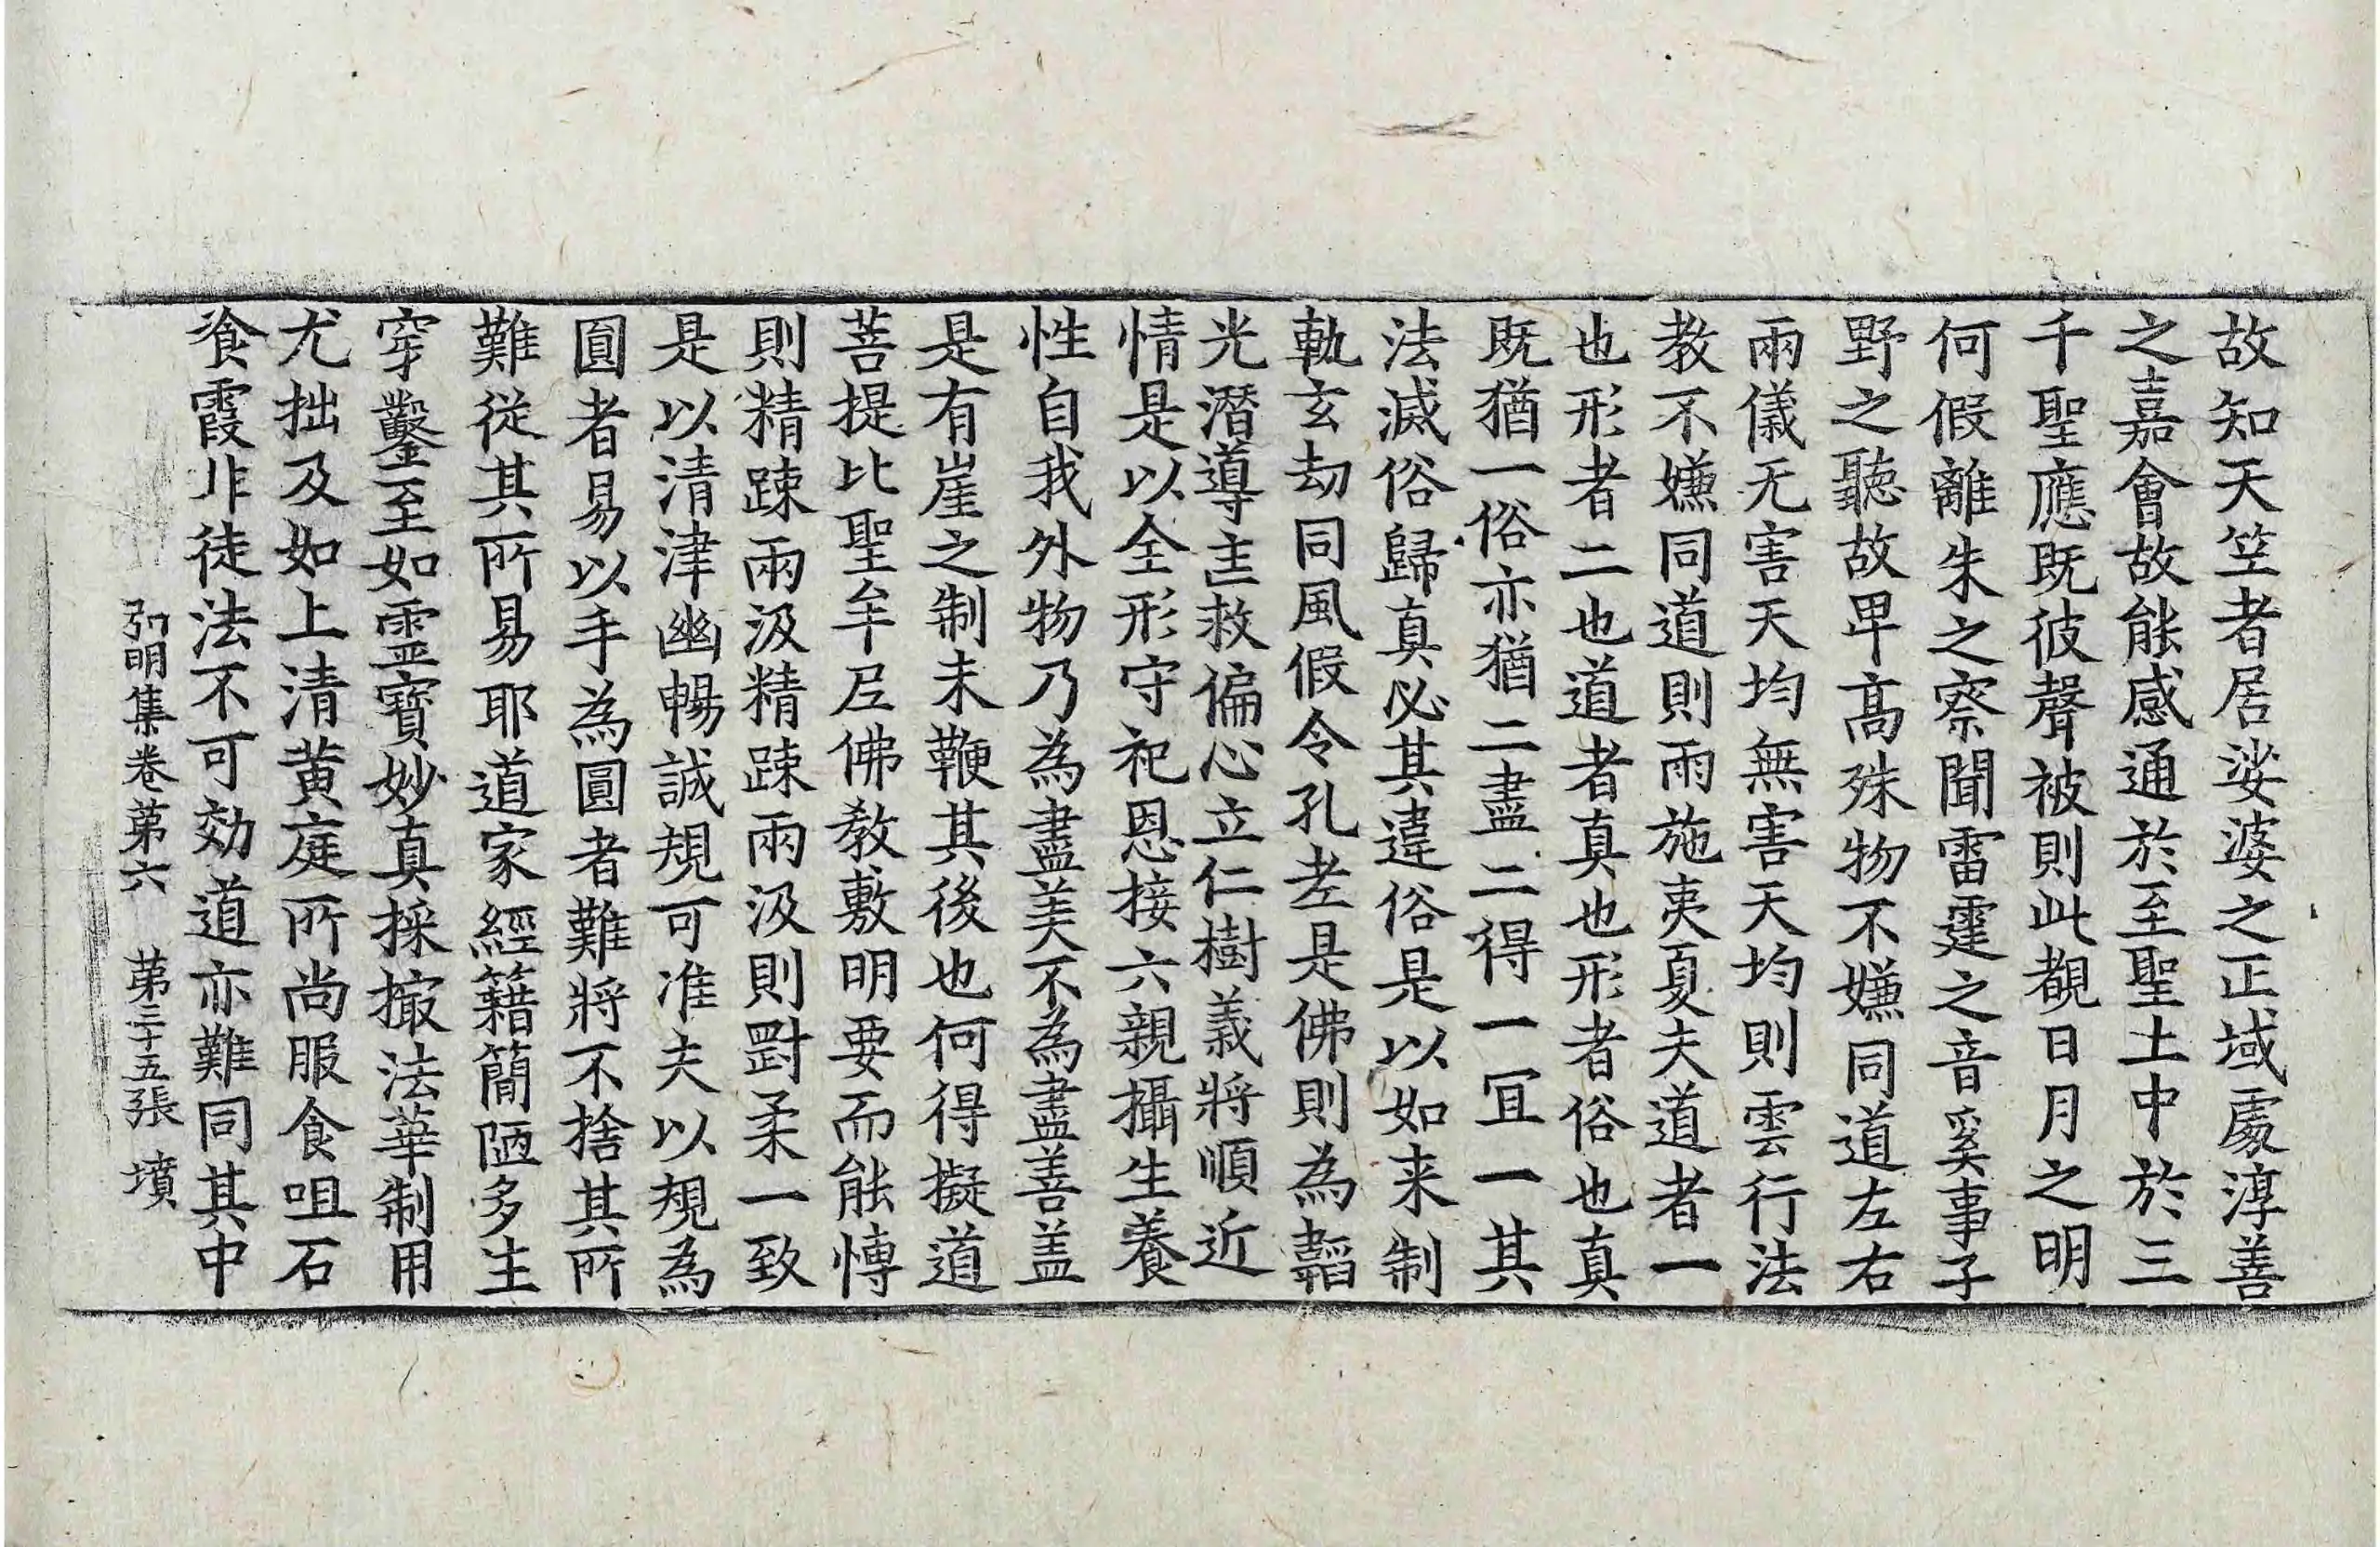 故知天竺者居娑婆之正域處淳善
之嘉會故能感通於至聖土中於三
千聖應既彼聲被則此覩日月之明
何假離朱之察聞雷霆之音奚事子
野之聽故卑高殊物不嫌同道左右
兩儀无害天均無害天均則雲行法
教不嫌同道則雨施夷夏夫道者一
也形者二也道者真也形者俗也真
既猶一俗亦猶二盡二得一冝一其
法滅俗歸真必其違俗是以如来制
軌玄劫同風假令孔老是佛則為韜
光潛導匡救偏心立仁樹義將順近
情是以全形守祀恩接六親攝生養
性自我外物乃為盡美不為盡善盖
是有崖之制未鞭其後也何得擬道
菩提比聖牟𡰱佛教敷明要而能慱
則精踈兩汲精踈兩汲則罰柔一致
是以清津幽暢誠規可准夫以規為
圓者易以手為圓者難將不捨其所
難從其所易耶道家經籍簡陋多生
穿鑿至如靈寶妙真採撮法華制用
尤拙及如上清黄庭所尚服食咀石
飡霞非徒法不可効道亦難同其中
弘明集卷第六 第三十五張 墳